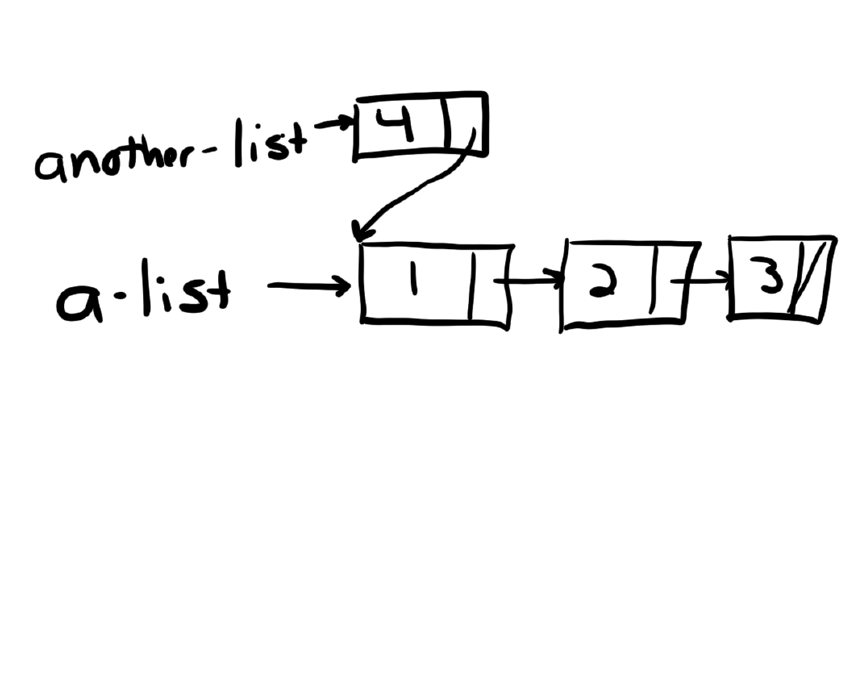 another-list 4
a-list 1 2 3